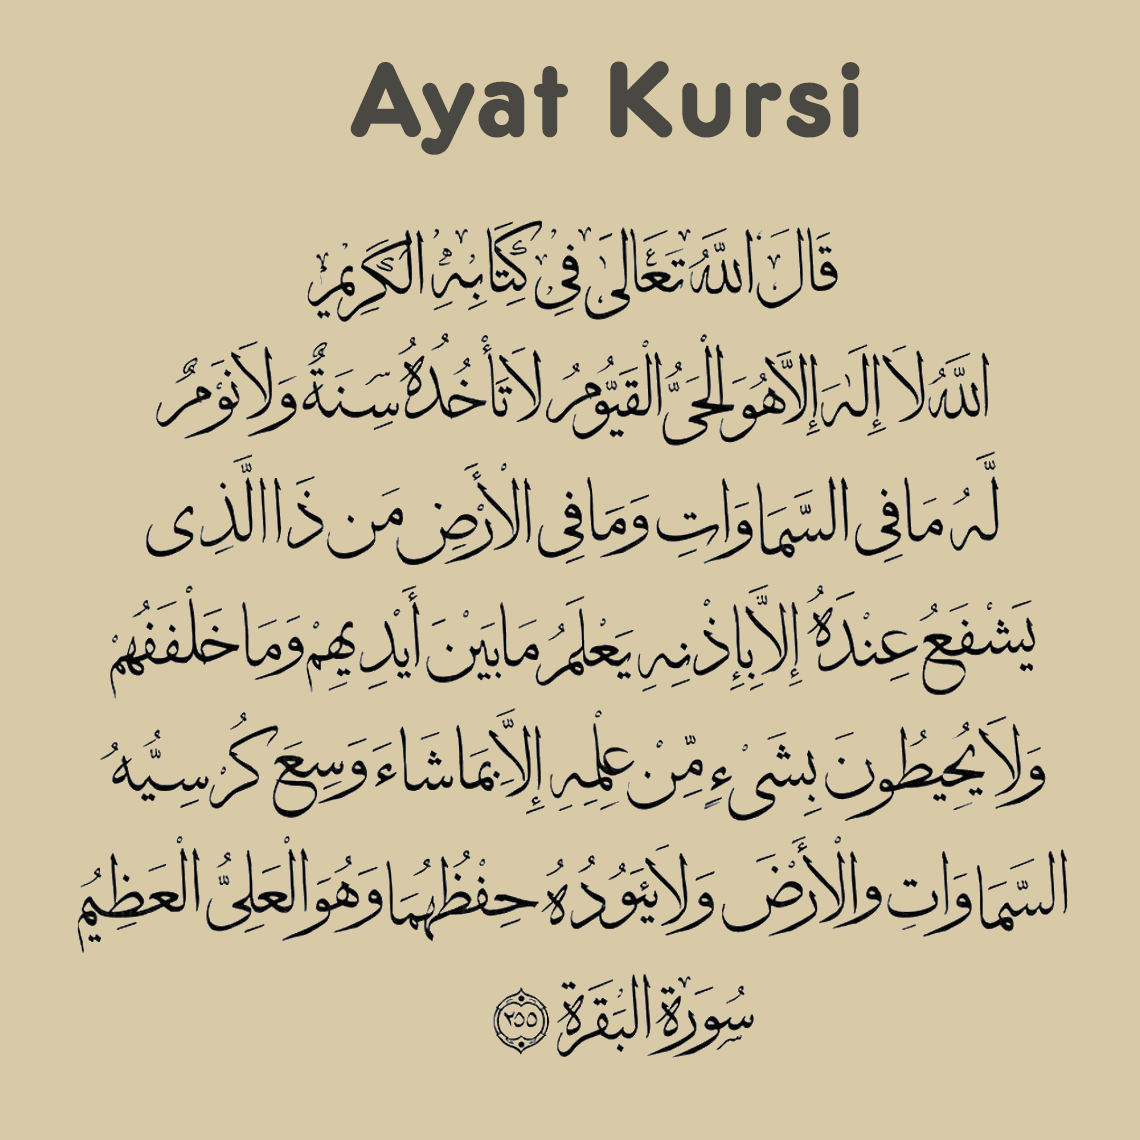 Ayat Kursi
قَالَ اللَّهُ تَعَالَى فِي كِتَابِهِ الْكَرِيمِ
اللَّهُ لَا إِلَٰهَ إِلَّا هُوَ الْحَيُّ الْقَيُّومُ لَا تَأْخُذُهُ سِنَةٌ وَلَا نَوْمٌ
لَّهُ مَا فِي السَّمَاوَاتِ وَمَا فِي الْأَرْضِ مَن ذَا الَّذِى
يَشْفَعُ عِنْدَهُ إِلَّا بِإِذْنِهِ يَعْلَمُ مَا بَيْنَ أَيْدِيهِمْ وَمَا خَلْفَفَهُمْ
وَلَا يُحِيطُونَ بِشَىْءٍ مِّنْ عِلْمِهِ إِلَّا بِمَا شَاءَ وَسِعَ كُرْسِيُّهُ
السَّمَاوَاتِ وَالْأَرْضَ وَلَا يَئُودُهُ حِفْظُهُمَا وَهُوَ الْعَلِىُّ الْعَظِيمُ
سُورَةُ الْبَقَرَةِ ٢٥٥